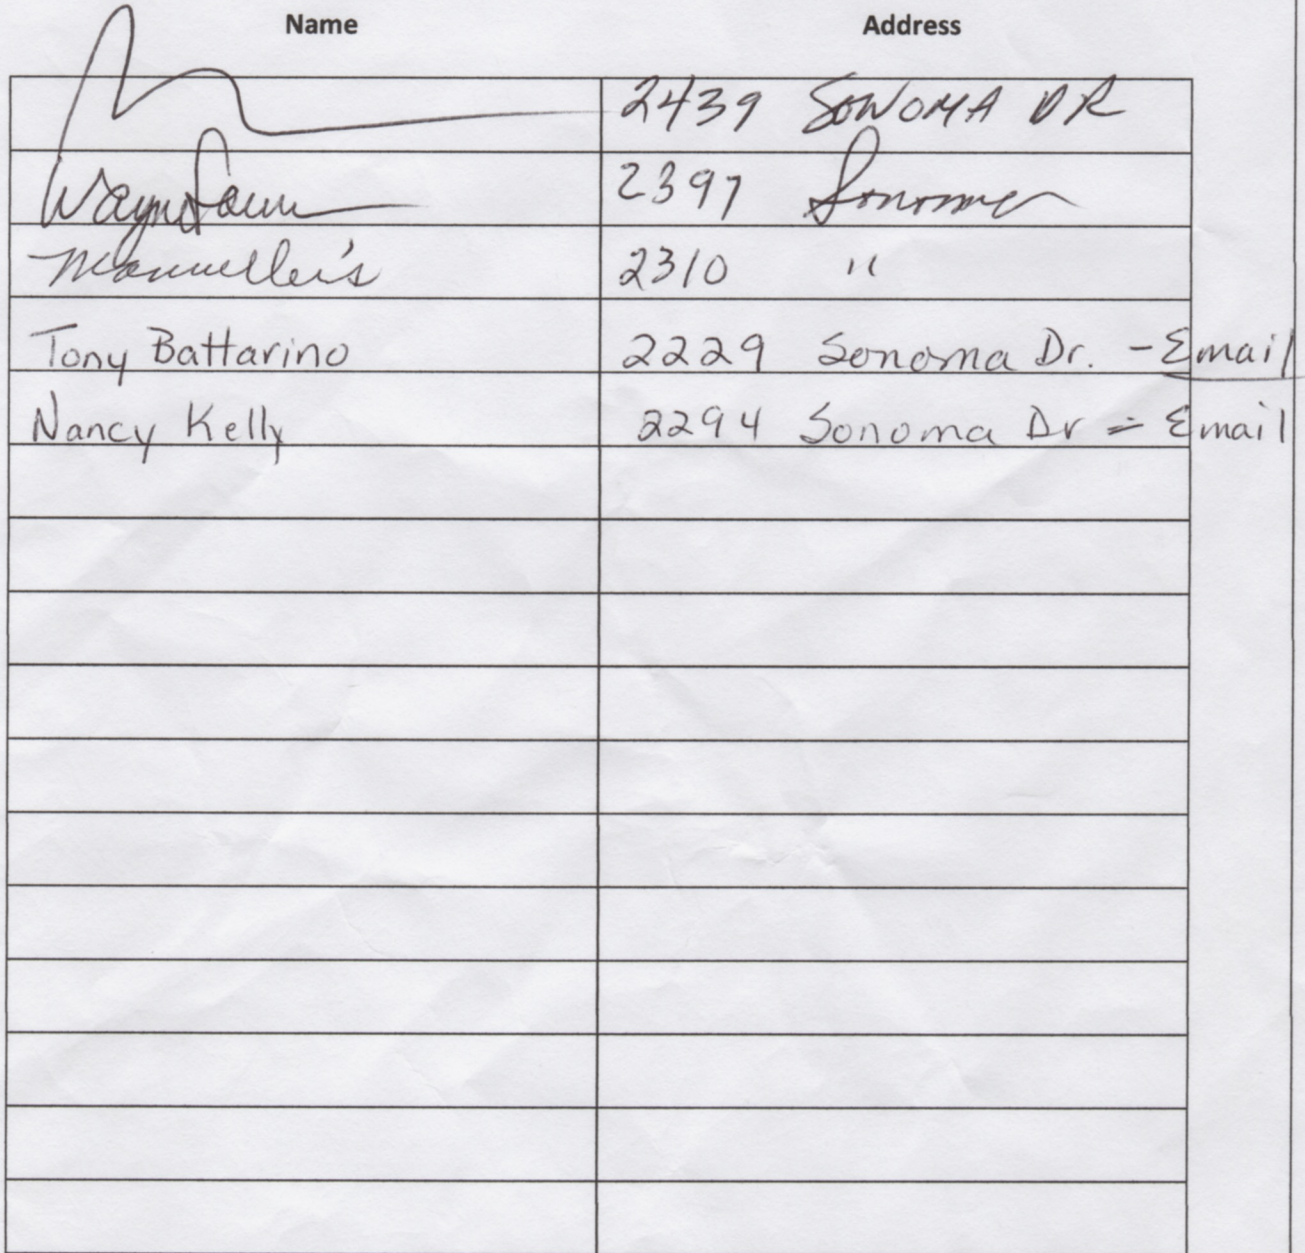 Name Address
2439 SONOMA DR
Wayne 2397 Sonoma
2310 "
Tony Battarino 2229 Sonoma Dr. - Email
Nancy Kelly 2294 Sonoma Dr = Email